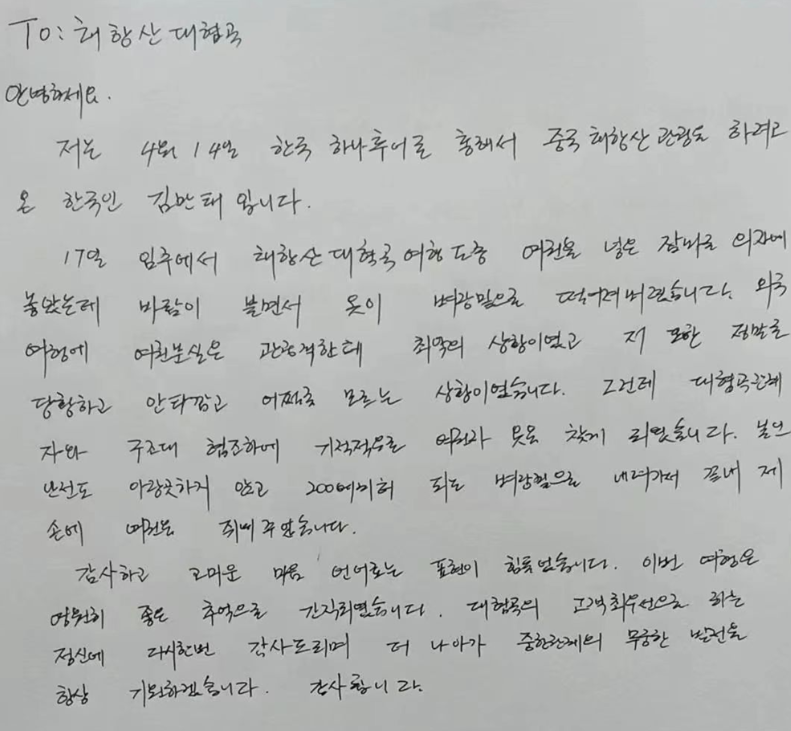 To: 태항산대협곡
안녕하세요.
저는 4월 14일 한국 하나투어로 통해서 중국 태항산 관광을 하려고
온 한국인 김만태 입니다.
17일 임주에서 태항산대협곡여행 도중 여권을 넣은 잠바를 의자에
놓았는데 바람이 불면서 옷이 벼랑밑으로 떨어져버렸습니다. 외국
여행에 여권분실은 관광객한테 최악의 상황이였고 저 또한 정말로
당황하고 안타깝고 어쩔줄 모르는 상황이였습니다. 그런데 대협곡관계
자와 구조대 협조하에 기적적우로 여권과 옷을 찾게 되였습니다. 본인
안전도 아랑곳하지 않고 200메터이 되는 벼랑밑으로 내려가서 끝내 제
손에 여권을 쥐여주었습니다.
감사하고 고마운 마음 언어로는 표현이 힘듯었습니다. 이번 여행은
영원히 좋은 추억으로 간직되였습니다. 대협곡의 고객최우선으로 하는
정신에 다시한번 감사드리며 더 나아가 중한관계의 무궁한 발전을
항상 기원하겠습니다. 감사합니다.